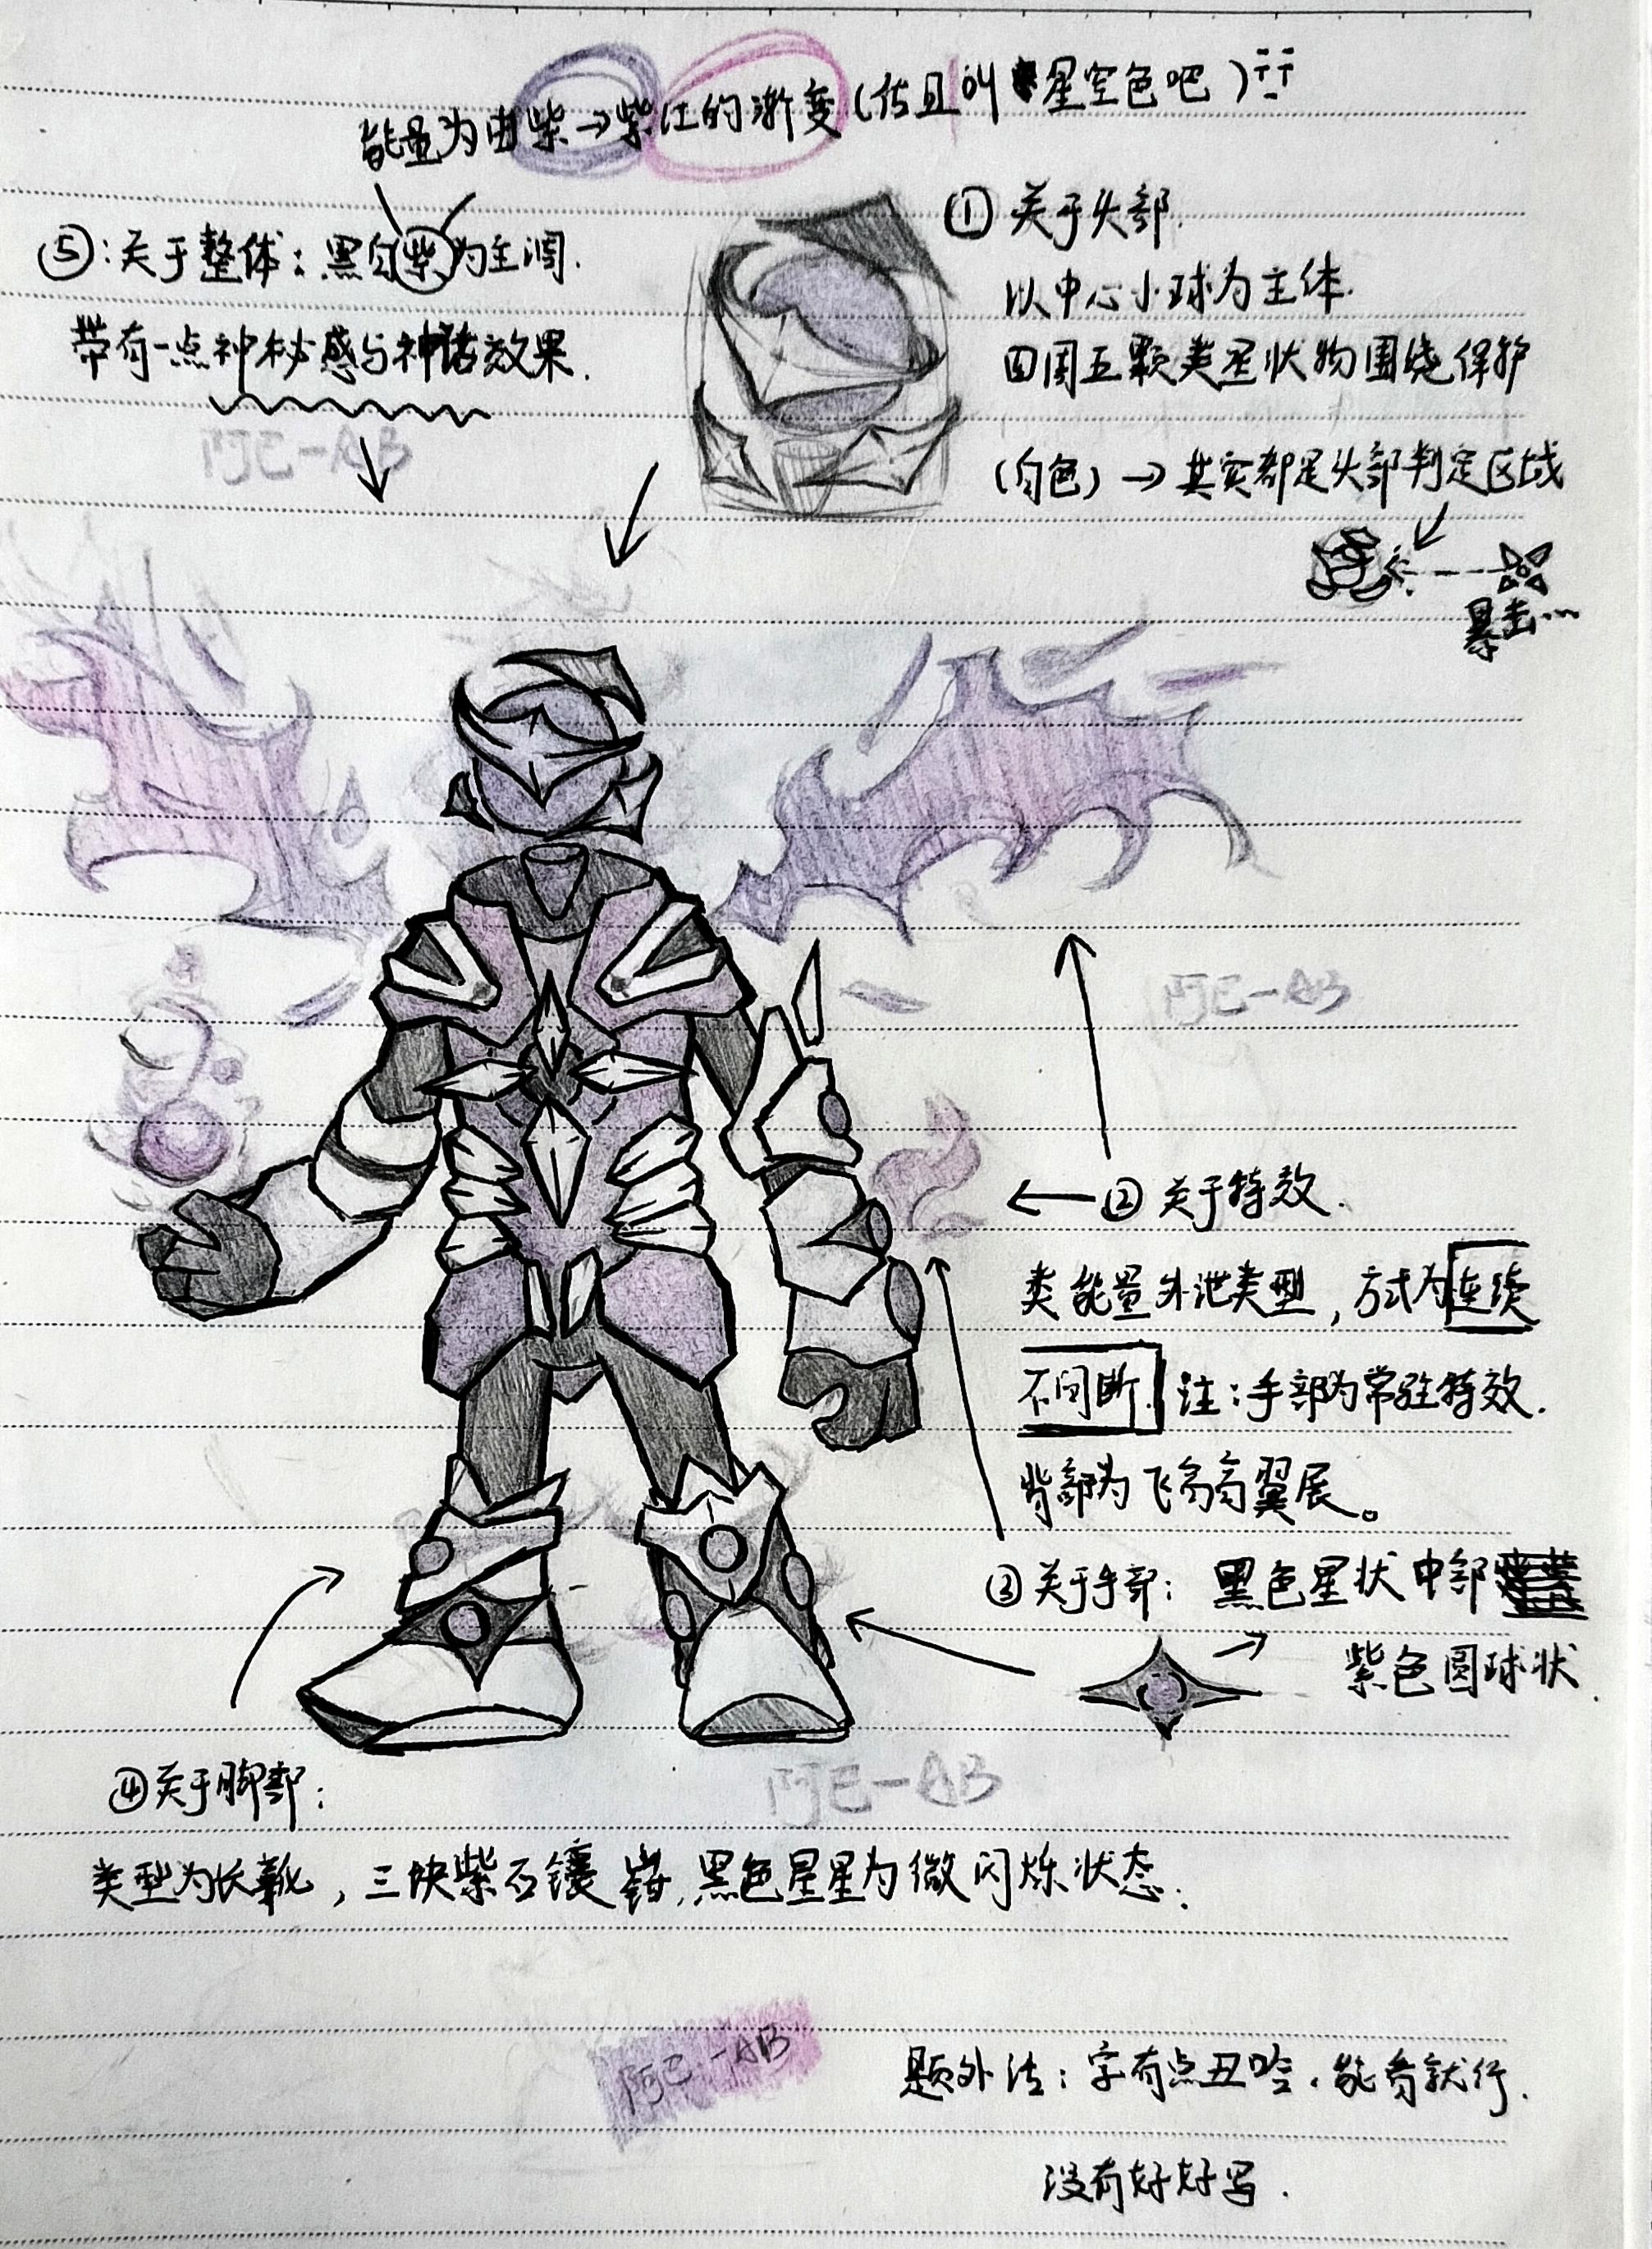 能量为由紫→紫红的渐变(估且叫星空色吧)
⑤:关于整体:黑白紫为主调.
带有一点神秘感与神话效果.
阿巳-AB
①关于头部.
以中心小球为主体.
四周五颗类星状物围绕保护
(白色)→其实都是头部判定区域
暴击…
阿巳-AB
←②关于特效.
类能量外泄类型,方式为连续
不间断.注:手部为常驻特效.
背部为飞高高翼展。
③关于手部:黑色星状中部
紫色圆球状.
④关于脚部:
类型为长靴,三块紫石镶嵌,黑色星星为微闪烁状态.
阿巳-AB
阿巳-AB
题外法:字有点丑哈.能看就行.
没有好好写.